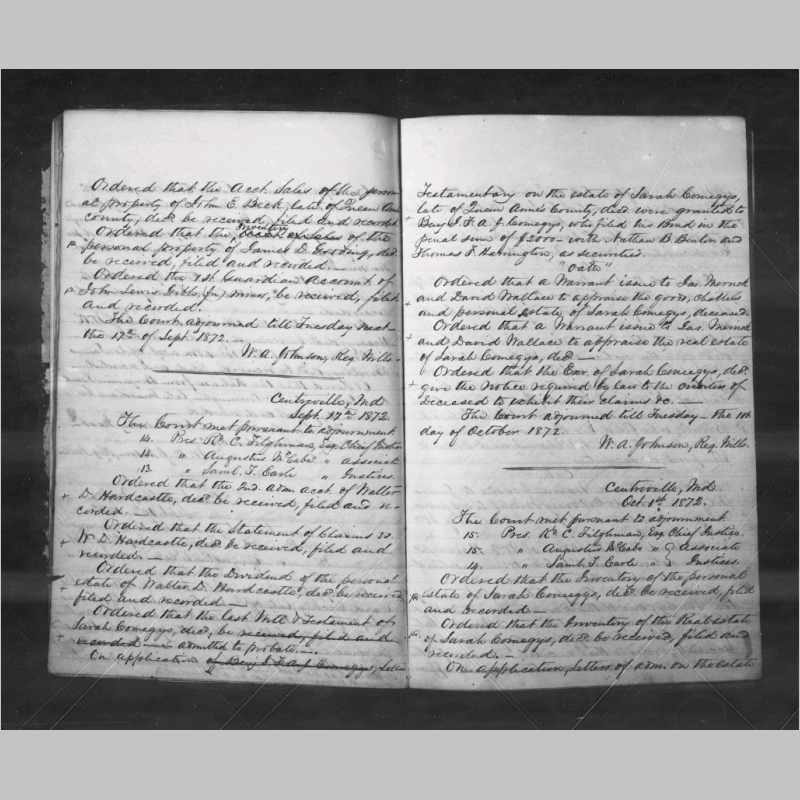 Ordered that the Acct. Sales of the person
al property of John E. Beck, late of Queen Ann
county, decd. be received, filed and recorded
Ordered that the Inventory of the
personal property of James D. Gooding, decd.
be received, filed and recorded.—
Ordered the Guardian Account of
John Lewis minor, be received, filed
and recorded.
The Court adjourned till Tuesday next
the 17th of Sept. 1872.—
W. A. Johnson, Reg. Wills.
Centreville, Md
Sept. 17th 1872.
The Court met pursuant to adjournment
14. Pres. R. C. Tilghman, Esq. Chief Justice
14 " Augustus McCabe " Associate
13 " Saml. T. Earle " Justices.
Ordered that the 2nd. Adm. Acct. of Walter
D. Hardcastle, decd. be received, filed and re-
corded.
Ordered that the Statement of Claims vs.
W. D. Hardcastle, decd. be received, filed and
recorded.—
Ordered that the Dividend of the personal
estate of Walter D. Hardcastle, decd. be received
filed and recorded—
Ordered that the last Will & Testament of
Sarah Comegys, decd., be received, filed and
recorded— admitted to probate.—
On application of Benj. F. A. J. Comegys, Letters
Testamentary on the estate of Sarah Comegys,
late of Queen Anne's County, decd. were granted to
Benj. F. A. J. Comegys, who filed his Bond in the
penal sum of $2000 with Nathan B. and
Thomas F. Harrington, as securities.
"Oath"
Ordered that a Warrant issue to Jas. Merrick
and David Wallace to appraise the goods, chattels
and personal estate of Sarah Comegys, deceased
Ordered that a Warrant issue to Jas. Merrick
and David Wallace to appraise the real estate
of Sarah Comegys, decd.—
Ordered that the Exr. of Sarah Comegys, decd.
give the Notice required by law to the Creditors of
Deceased to exhibit their claims &c.—
The Court adjourned till Tuesday— the 1st
day of October 1872.
W. A. Johnson, Reg. Wills.
Centreville, Md.
Oct. 1st. 1872.
The Court met pursuant to adjournment
15. Pres. R. C. Tilghman, Esq. Chief Justice.
15. " Augustus McCabe " } Associate
14. " Saml. T. Earle " } Justices.
Ordered that the Inventory of the personal
estate of Sarah Comegys, decd. be received, filed
and recorded—
Ordered that the Inventory of the Real estate
of Sarah Comegys, decd. be received, filed and
recorded.—
On application, Letters of adm. on the estate